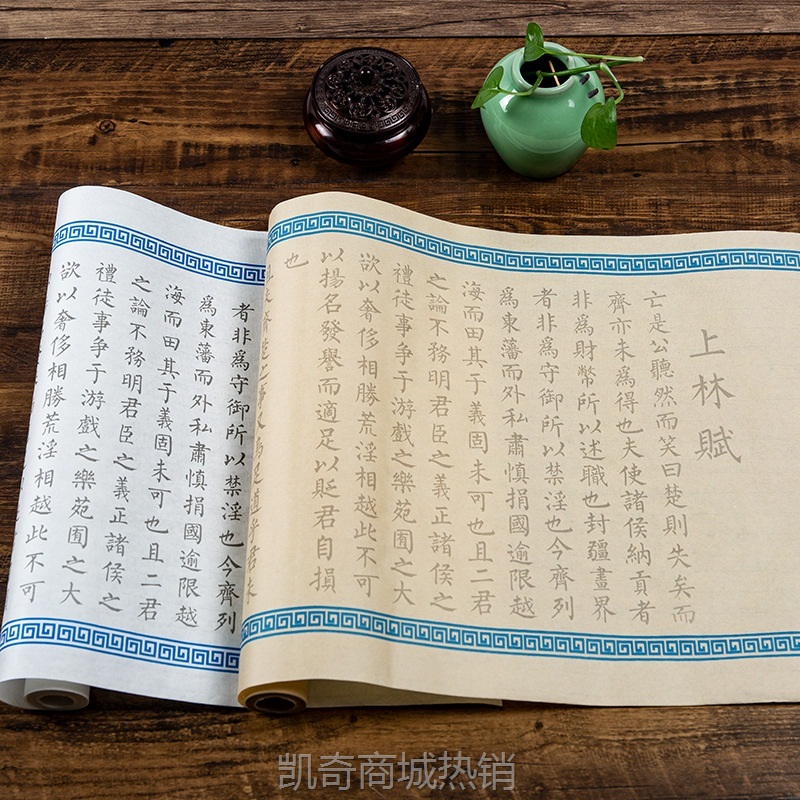 上林賦
亡是公聽然而笑曰楚則失矣而
齊亦未爲得也夫使諸侯納貢者
非爲財幣所以述職也封疆畫界
者非爲守御所以禁淫也今齊列
爲東藩而外私肅慎捐國逾限越
海而田其于義固未可也且二君
之論不務明君臣之義正諸侯之
禮徒事爭于游戲之樂苑囿之大
欲以奢侈相勝荒淫相越此不可
以揚名發譽而適足以貶君自損
也
齊楚之事又烏足道乎君未
者非爲守御所以禁淫也今齊列
爲東藩而外私肅慎捐國逾限越
海而田其于義固未可也且二君
之論不務明君臣之義正諸侯之
禮徒事爭于游戲之樂苑囿之大
欲以奢侈相勝荒淫相越此不可
凯奇商城热销